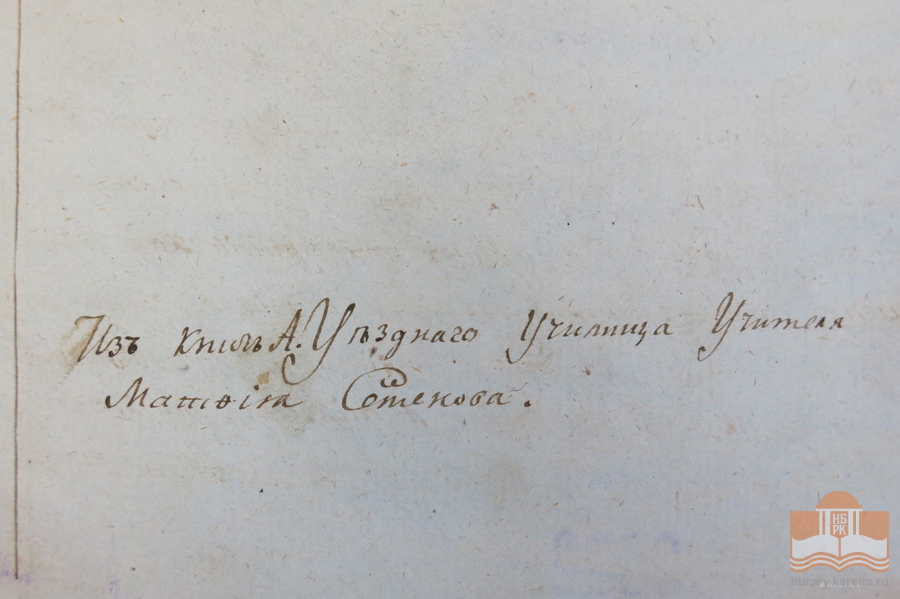 Изъ книгъ А. Уѣзднаго Училища Учителя
Матѳіа
НБ
РК
library.karelia.ru